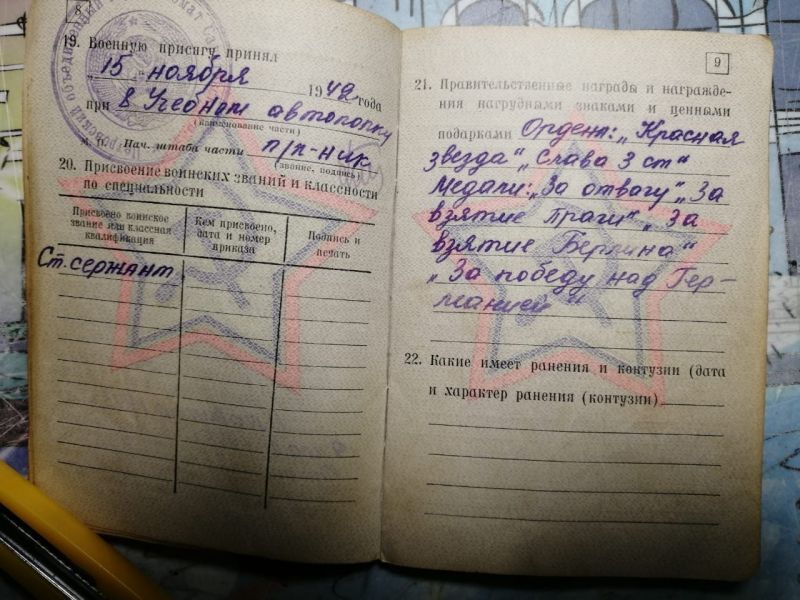 8
19. Военную присягу принял
„15" ноября 1942 года
при 8 Учебном автополку
(наименование части)
м. п. Нач. штаба части п/п-ник
(звание, подпись)
20. Присвоение воинских званий и классности
по специальности
Присвоено воинское
звание или классная
квалификация
Кем присвоено,
дата и номер
приказа
Подпись и
печать
Ст. сержант
9
21. Правительственные награды и награжде-
ния нагрудными знаками и ценными
подарками Ордена: „Красная
звезда" „Слава 3 ст"
Медали: „За отвагу" „За
взятие Праги" „За
взятие Берлина"
„За победу над Гер-
манией"
22. Какие имеет ранения и контузии (дата
и характер ранения (контузии)